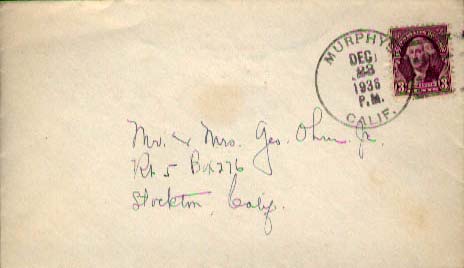 MURPHYS
DEC
23
1936
P.M.
CALIF.
3 3
Mr. & Mrs. Geo. Ohm. Jr.
Rt 5 Box 276
Stockton, Calif.